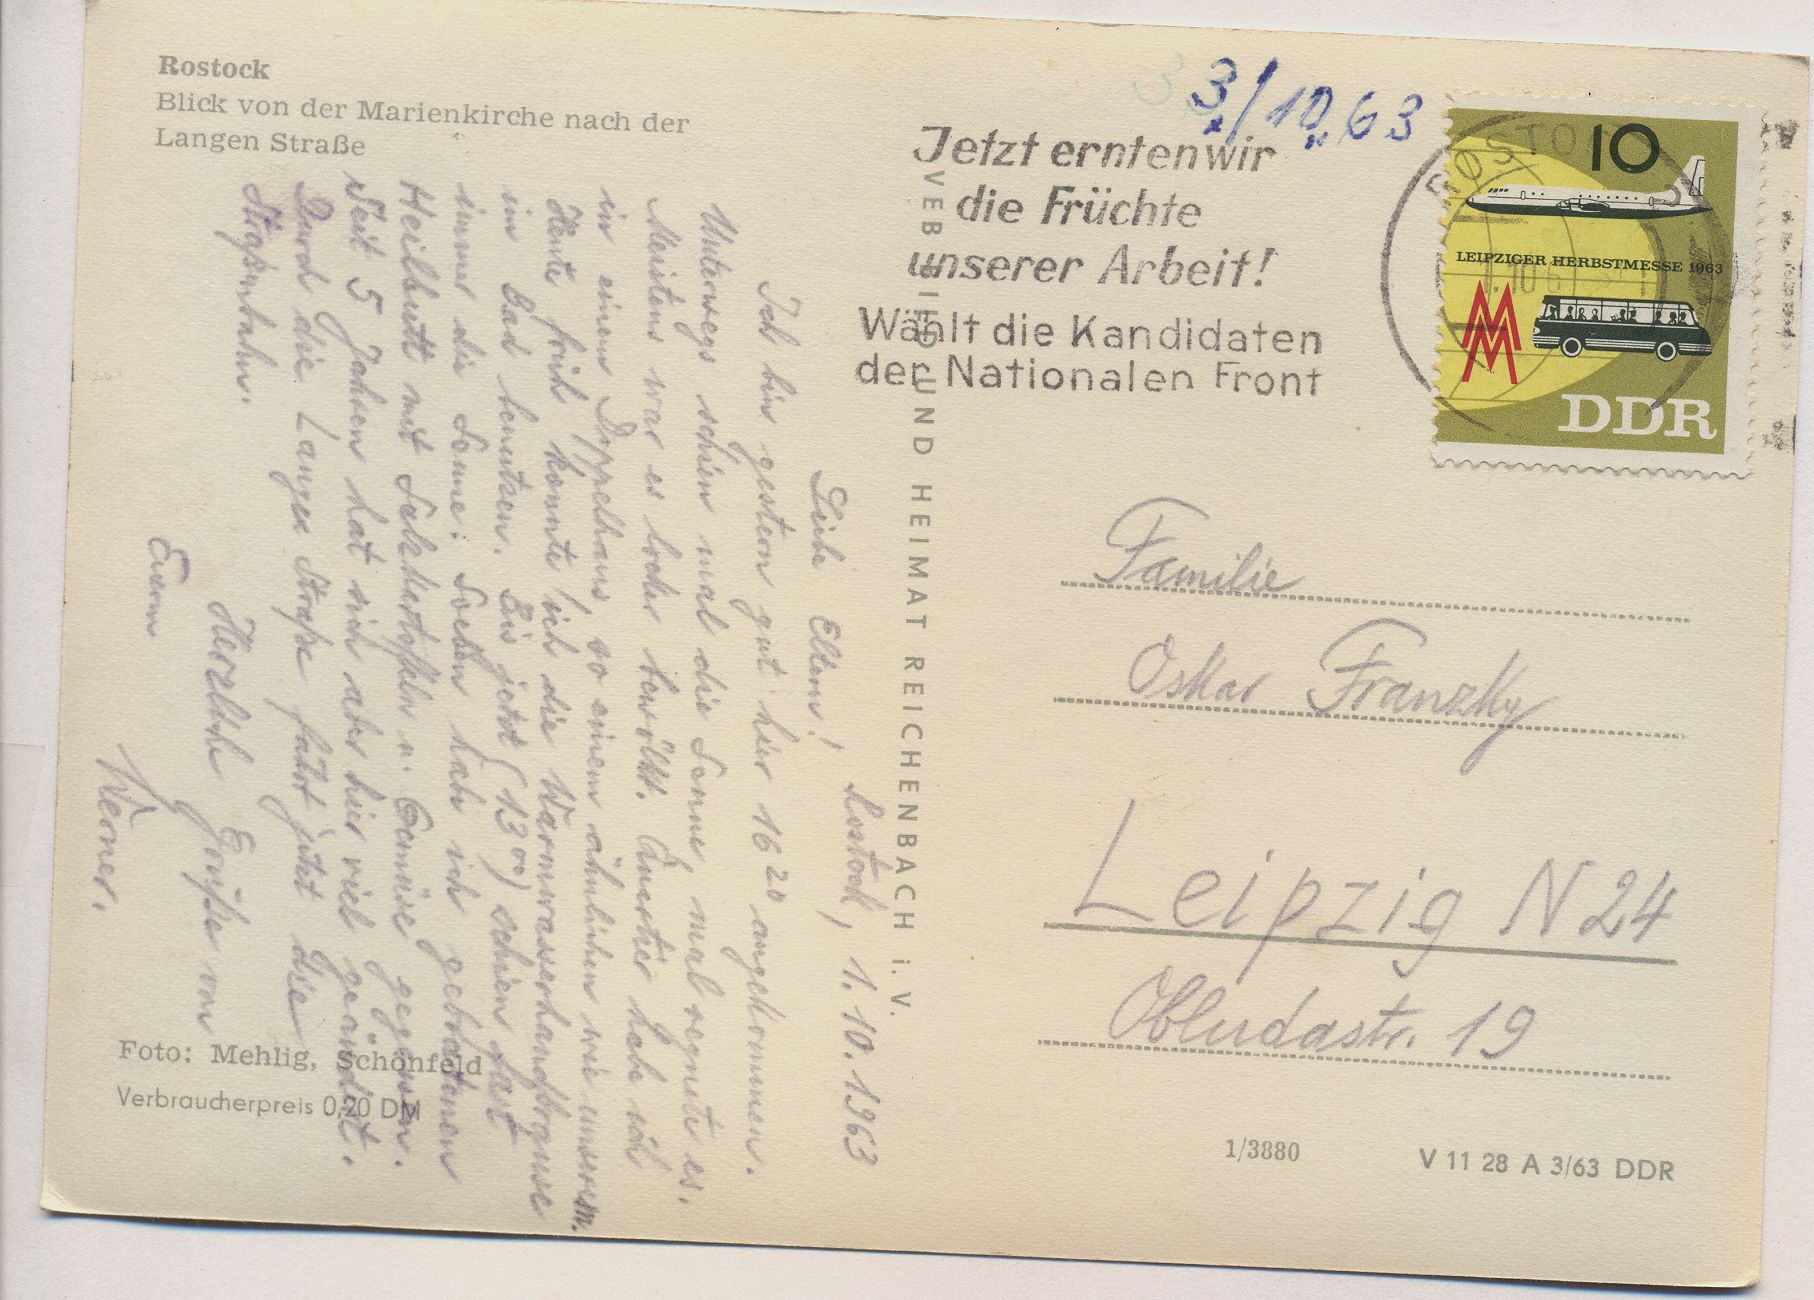 Rostock
Blick von der Marienkirche nach der
Langen Straße
Rostock, 1.10.1963
Liebe Eltern!
Ich bin gestern gut hier 16²⁰ angekommen.
Unterwegs schien mal die Sonne, mal regnete es.
Meistens war es locker bewölkt. Quartier habe ich
in einem Doppelhaus, so einem ähnlichen wie unserm.
Heute früh konnte ich die Warmwasserhandbrause
im Bad benutzen. Bis jetzt (13⁰⁰) schien fast
immer die Sonne. Soeben habe ich gebratenen
Heilbutt mit Salzkartoffeln u. Gemüse gegessen.
Seit 5 Jahren hat sich aber hier viel geändert.
Durch die Lange Straße fährt jetzt die
Straßenbahn.
Herzliche Grüße von
Euerm
Werner.
Foto: Mehlig, Schönfeld
Verbraucherpreis 0,20 DM
VEB BILD UND HEIMAT REICHENBACH i. V.
3./10.63
Jetzt ernten wir
die Früchte
unserer Arbeit!
Wählt die Kandidaten
der Nationalen Front
ROSTOCK
10
LEIPZIGER HERBSTMESSE 1963
DDR
Familie
Oskar Franzky
Leipzig N 24
Obludastr. 19
1/3880
V 11 28 A 3/63 DDR